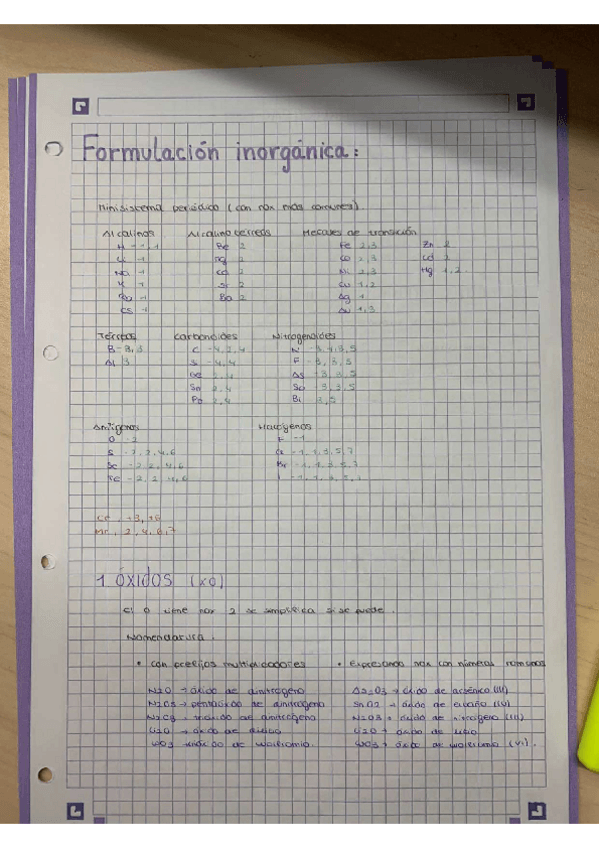 Formulación inorgánica:
Minisistema periódico (con nox más comunes).
Alcalinos
H -1,1
Li 1
Na 1
K 1
Rb 1
Cs 1
Alcalinotérreos
Be 2
Mg 2
Ca 2
Sr 2
Ba 2
Metales de transición
Fe 2,3
Co 2,3
Ni 2,3
Cu 1,2
Ag 1
Au 1,3
Zn 2
Cd 2
Hg 1,2
Térreos
B -3,3
Al 3
Carbonoides
C -4,2,4
Si -4,4
Ge 2,4
Sn 2,4
Pb 2,4
Nitrogenoides
N
As -3,3,5
Sb -3,3,5
Bi 3,5
Anfígenos
O -2
S -2,2,4,6
Se -2,2,4,6
Te -2,2,4,6
Halógenos
F -1
Cl -1,1,3,5,7
1 óxidos (XO)
El O tiene nox 2 se simplifica si se puede.
Nomenclatura.
• Con prefijos multiplicadores
N2O → óxido de dinitrógeno
N2O5 → pentaóxido de dinitrógeno
N2O3 → trióxido de dinitrógeno
Li2O → óxido de dilitio
WO3 → trióxido de wolframio.
• Expresando nox con números romanos
As2O3 → óxido de arsénico (III)
SnO2 → óxido de estaño (IV)
N2O3 → óxido de nitrógeno (III)
Li2O → óxido de litio
WO3 → óxido de wolframio (VI).